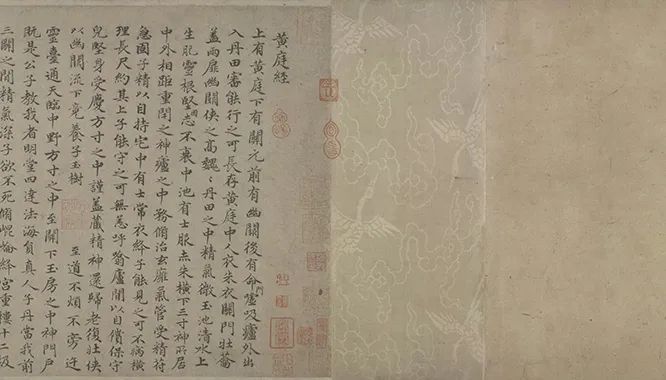 黄庭経
上有黄庭下有關元前有幽關後有命門嘘吸廬外出
入丹田審能行之可長存黄庭中人衣朱衣關門壯籥
盖兩扉幽關俠之高魏〻丹田之中精氣微玉池清水上
生肥靈根堅固志不衰中池有士服赤朱横下三寸神所居
中外相距重閇之神廬之中務脩治玄廱氣管受精符
急固子精以自持宅中有士常衣絳子能見之可不病横
理長尺約其上子能守之可無恙呼噏廬間以自償保守
兒堅身受慶方寸之中謹盖藏精神還歸老復壯俠
以幽關流下竟養子玉樹 至道不煩不旁迕
靈臺通天臨中野方寸之中至關下玉房之中神門戶
既是公子教我者明堂四達法海負真人子丹當我前
三關之間精氣深子欲不死脩崐崘絳宫重樓十二級